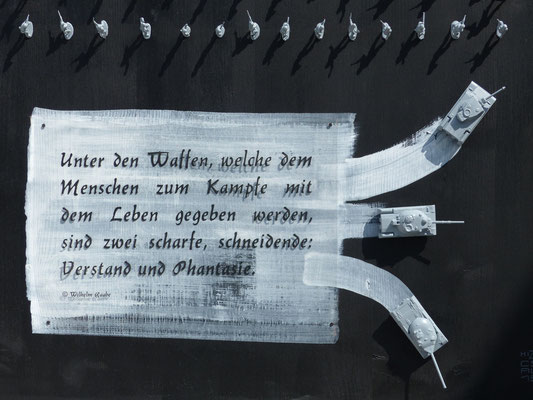 Unter den Waffen, welche dem
Menschen zum Kampfe mit
dem Leben gegeben werden,
sind zwei scharfe, schneidende:
Verstand und Phantasie.
© Wilhelm Raabe